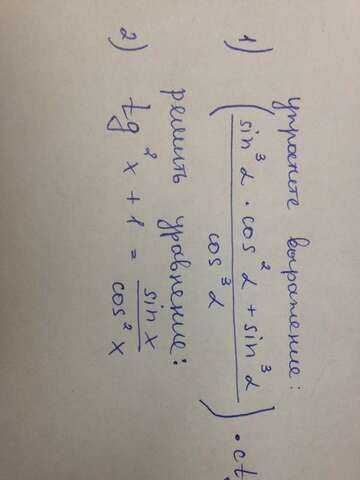 упростите выражение:
1) (sin³α · cos²α + sin³α / cos³α) · ct
решить уравнение:
2) tg²x + 1 = sin x / cos²x